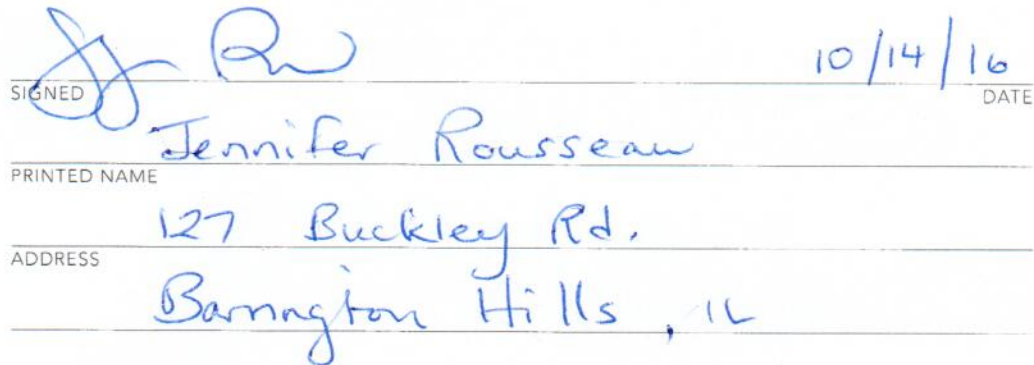 10/14/16
SIGNED DATE
Jennifer Rousseau
PRINTED NAME
127 Buckley Rd.
ADDRESS
Barrington Hills, IL